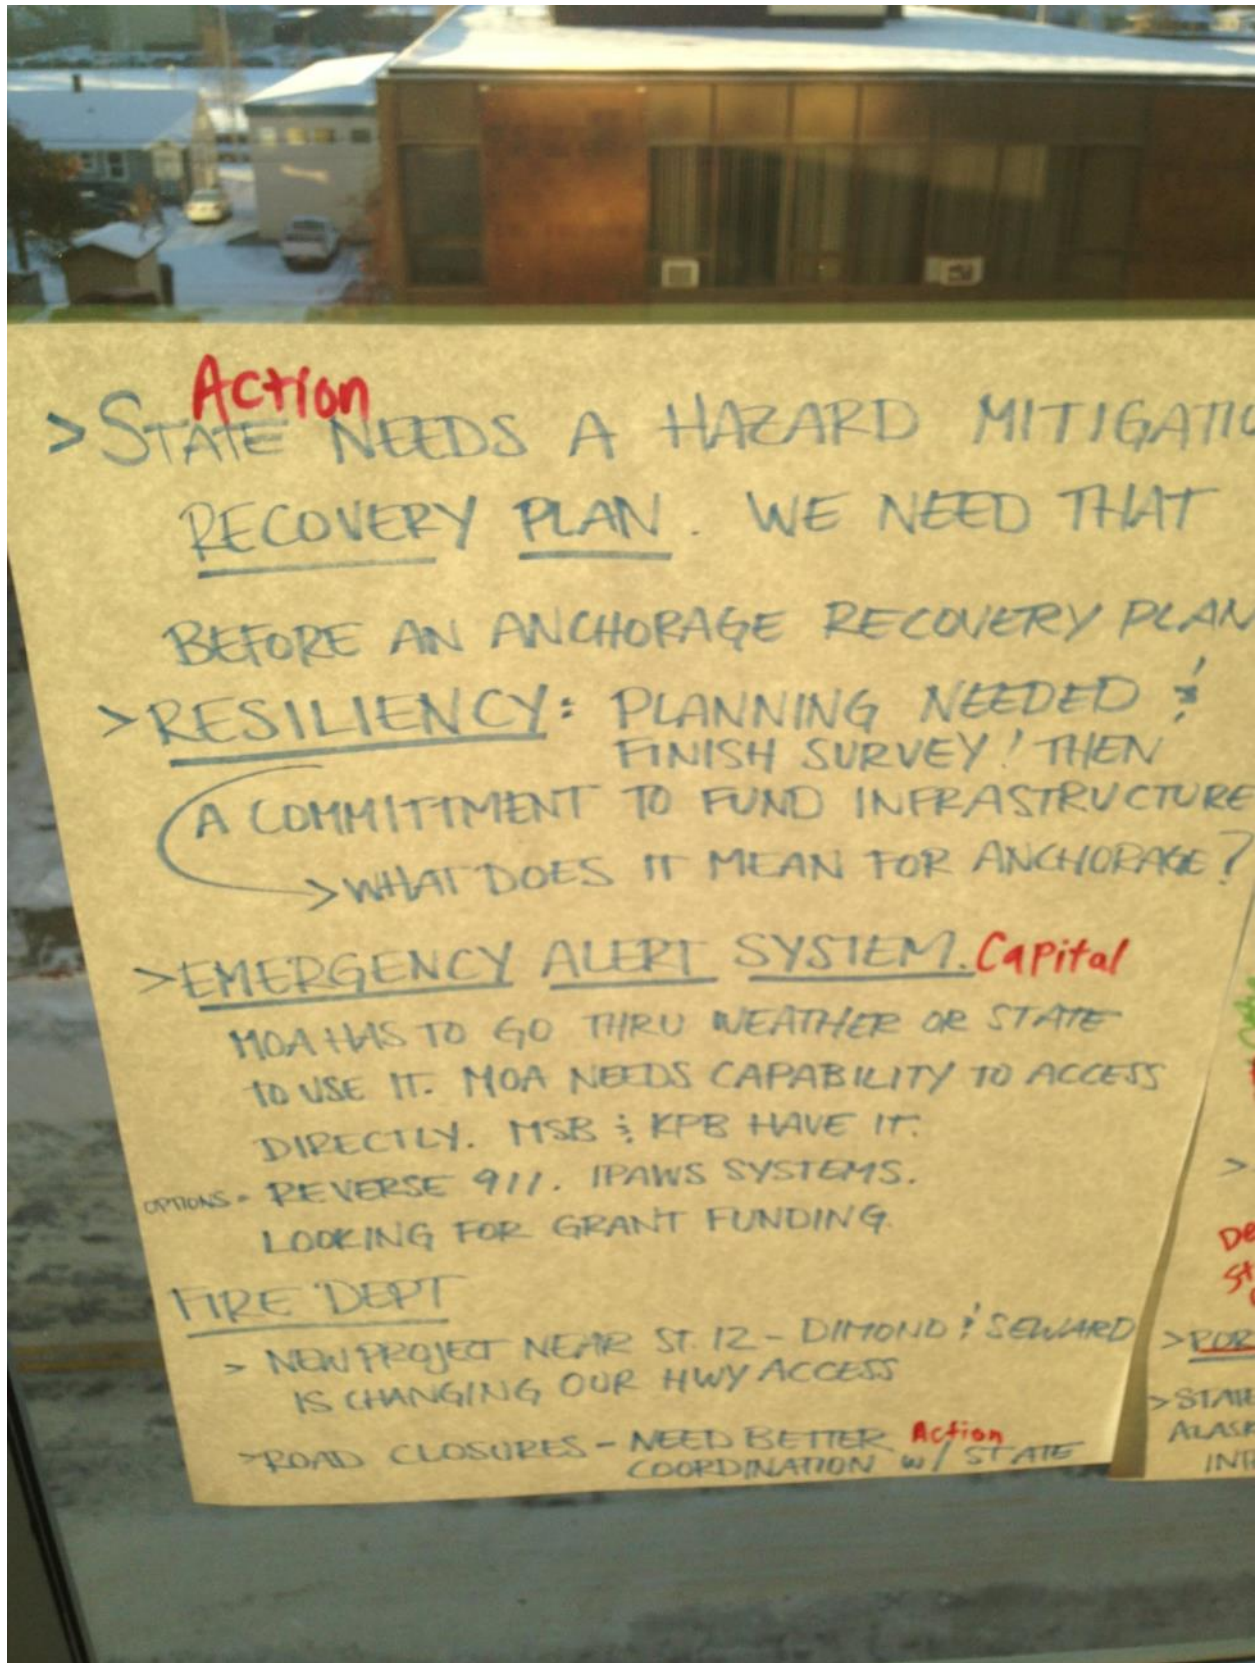 Action
> STATE NEEDS A HAZARD MITIGATIO
RECOVERY PLAN. WE NEED THAT
BEFORE AN ANCHORAGE RECOVERY PLAN
> RESILIENCY: PLANNING NEEDED &
FINISH SURVEY! THEN
A COMMITTMENT TO FUND INFRASTRUCTURE
> WHAT DOES IT MEAN FOR ANCHORAGE?
> EMERGENCY ALERT SYSTEM. Capital
MOA HAS TO GO THRU WEATHER OR STATE
TO USE IT. MOA NEEDS CAPABILITY TO ACCESS
DIRECTLY. MSB & KPB HAVE IT.
OPTIONS - REVERSE 911. IPAWS SYSTEMS.
LOOKING FOR GRANT FUNDING.
FIRE DEPT
> NEW PROJECT NEAR ST. 12 - DIMOND & SEWARD
IS CHANGING OUR HWY ACCESS
> ROAD CLOSURES - NEED BETTER Action
COORDINATION w/ STATE
>
De
St
> POR
> STATE
ALASK